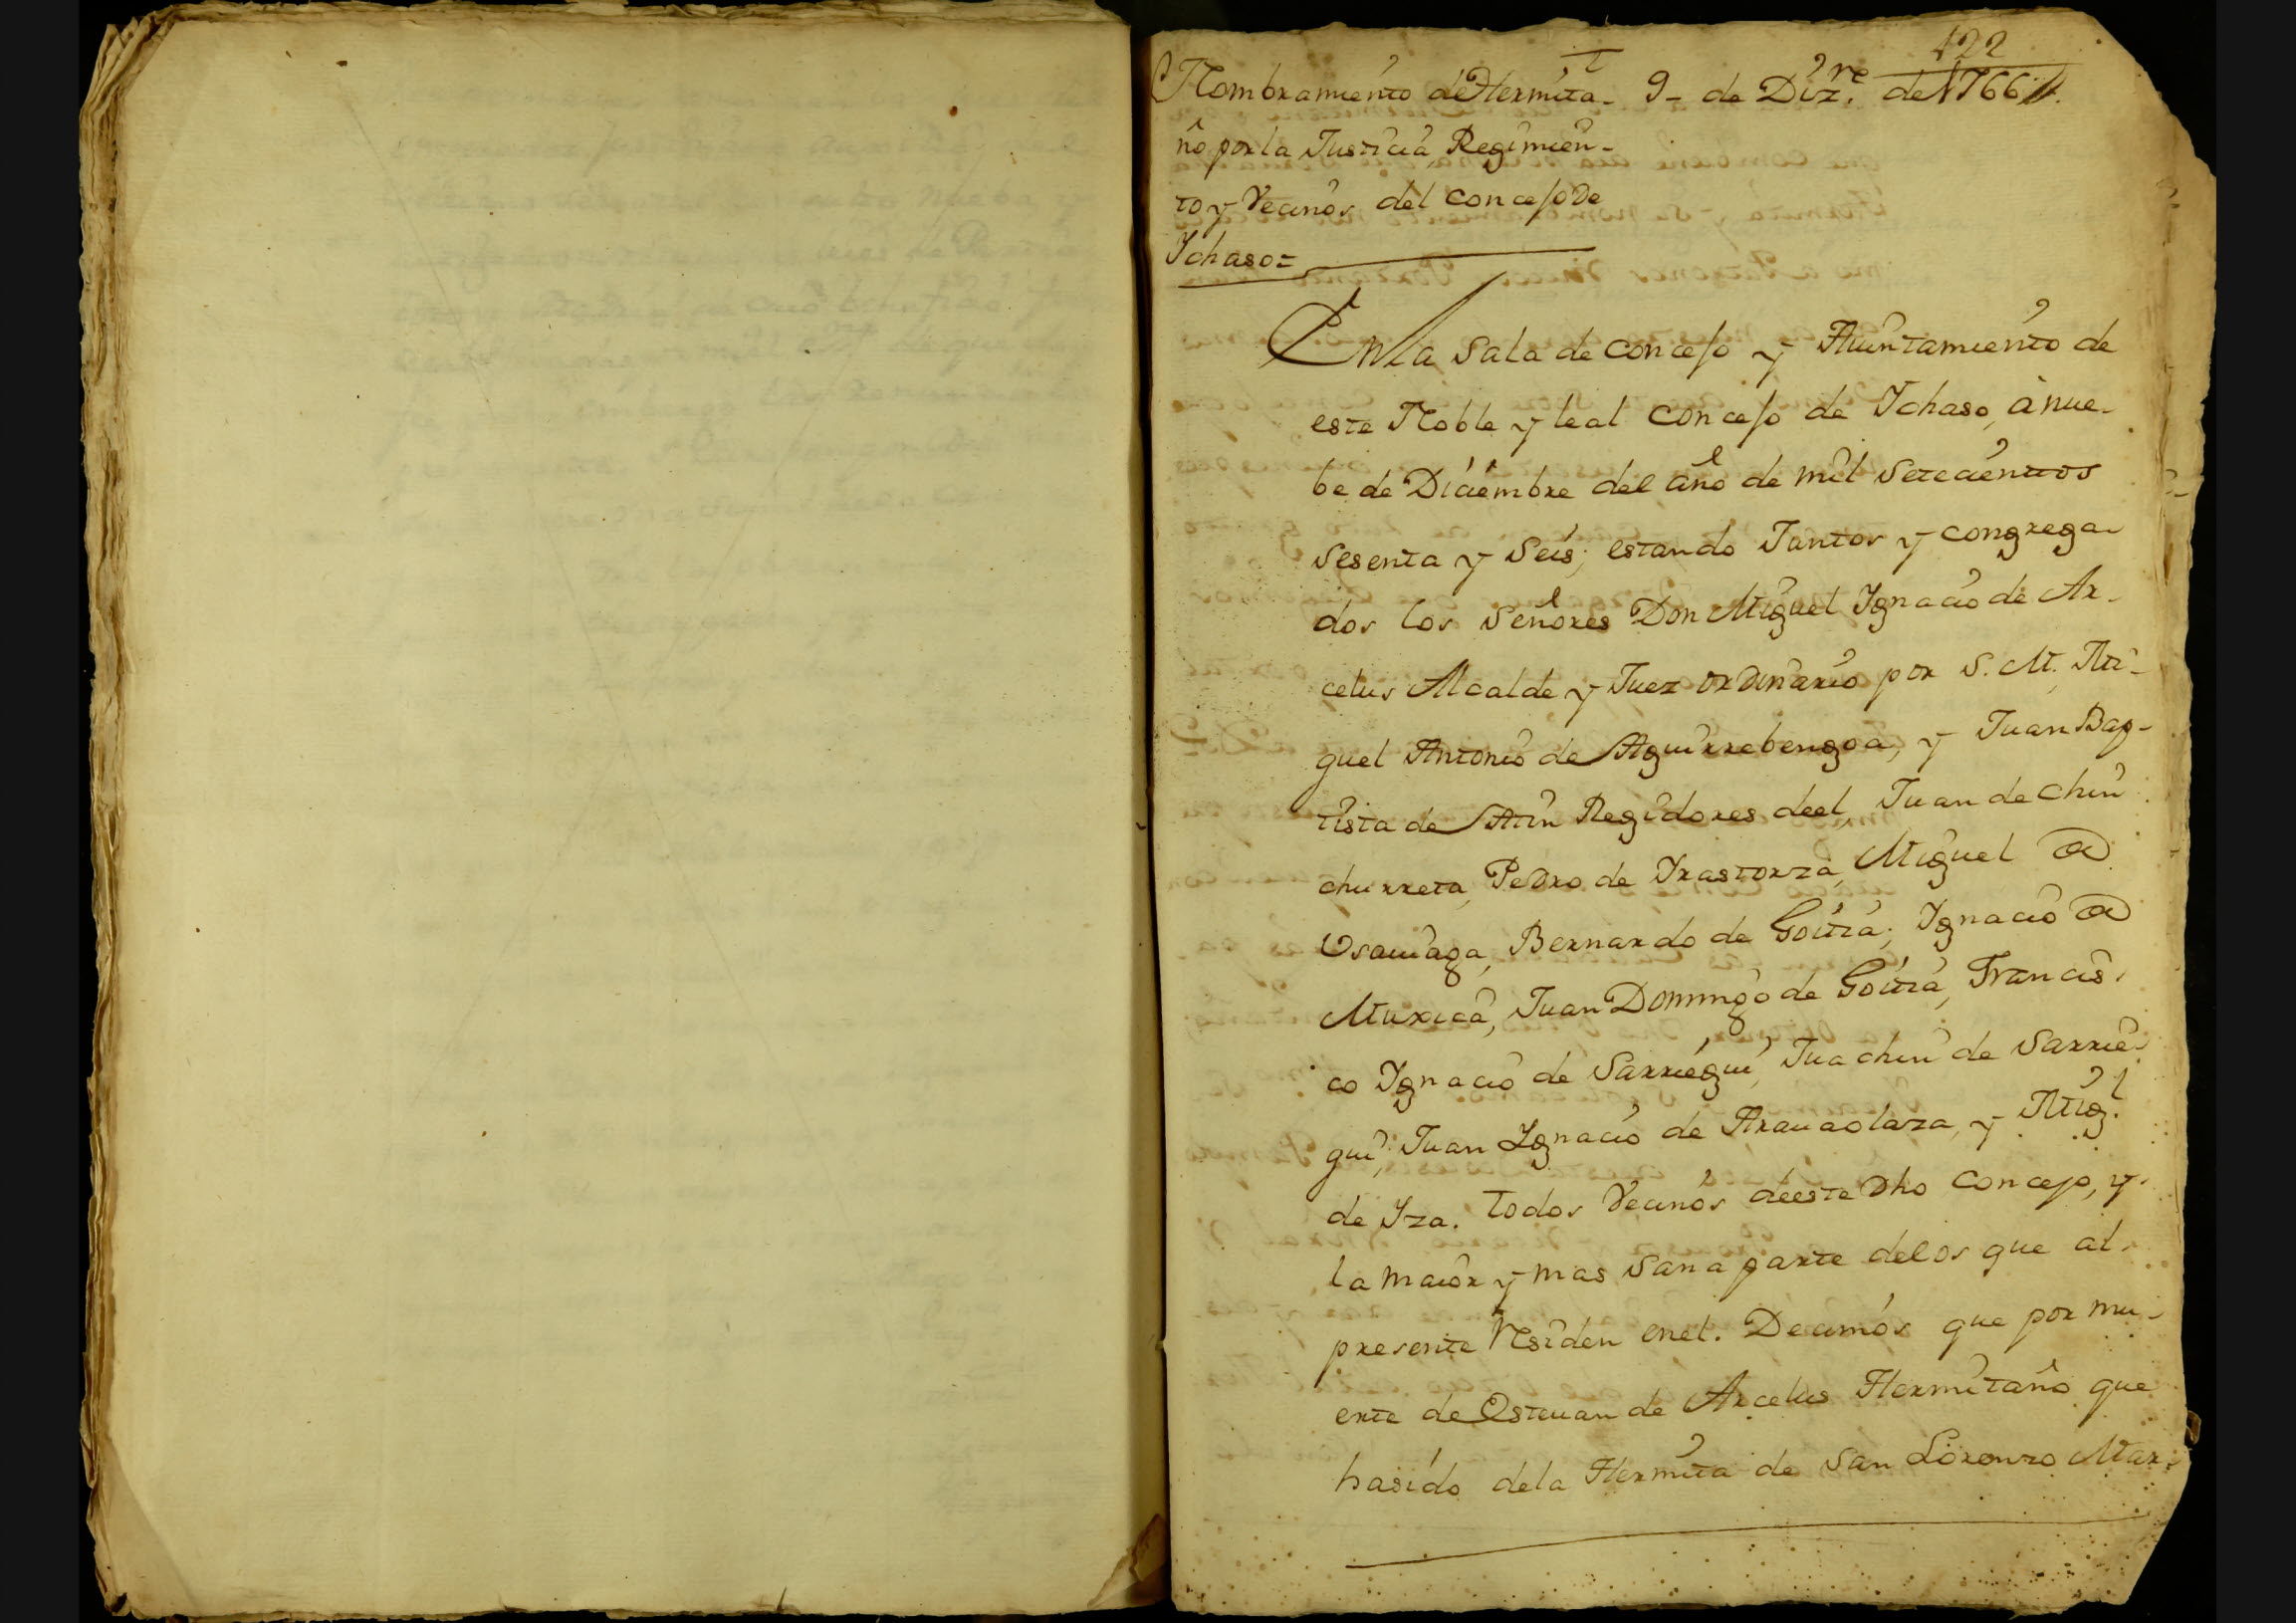 422
Nombramiento de Hermita- 9- de Diz.re de 1766
ño por la Justicia, Regimien-
to y Vecinos del concejo De
Ichaso=
En la Sala de concejo y Aiuntamiento de
este Noble y leal concejo de Ichaso, à nue-
be de Diciembre del año de mil Setecienttos
Sesenta y Seis; estando Juntos y congrega-
dos los Señores Don Miguel Ignacio de Ar-
celus Alcalde y Juez ordinario por S. M. Mi-
guel Antonio de Aguirrebengoa, y Juan Bap-
tista de Atin Regidores deel, Juan de Chin
churreta, Pedro de Irastorza, Miguel de
Osauiaga, Bernardo de Goitia; Ignacio de
Muxica, Juan Domingo de Goitia, Francis-
co Ignacio de Sarriegui, Juachin de Sarrie-
gui, Juan Ignacio de Arauaolaza, y Mig.l
de Iza. todos Vecinos deeste Dho concejo, y
la maior y mas Sana parte delos que al
presente Residen enel. Decimos que por mu-
erte de Esteuan de Arcelus Hermitaño que
hasido dela Hermita de San Lorenzo Mar-